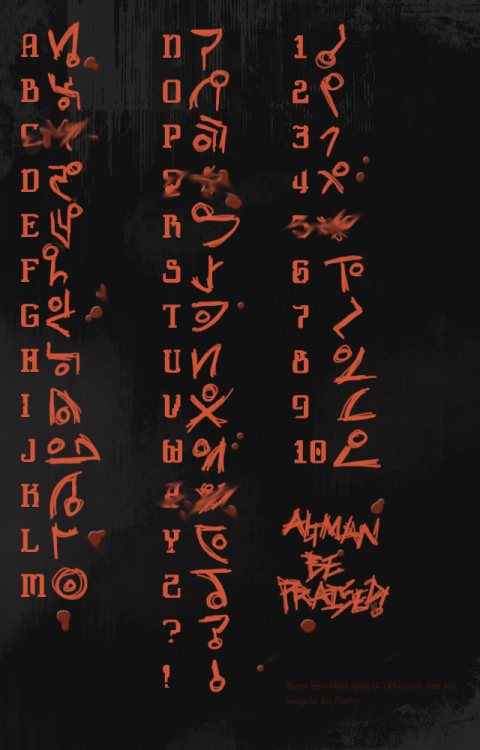 A
B
C
D
E
F
G
H
I
J
K
L
M
N
O
P
R
S
T
U
V
W
Y
Z
?
!
1
2
3
4
5
6
7
8
9
10
ALTMAN
BE
PRAISED!
Runes from Dead Space (C) Electronic Arts Inc.
Image by Kit Fewley